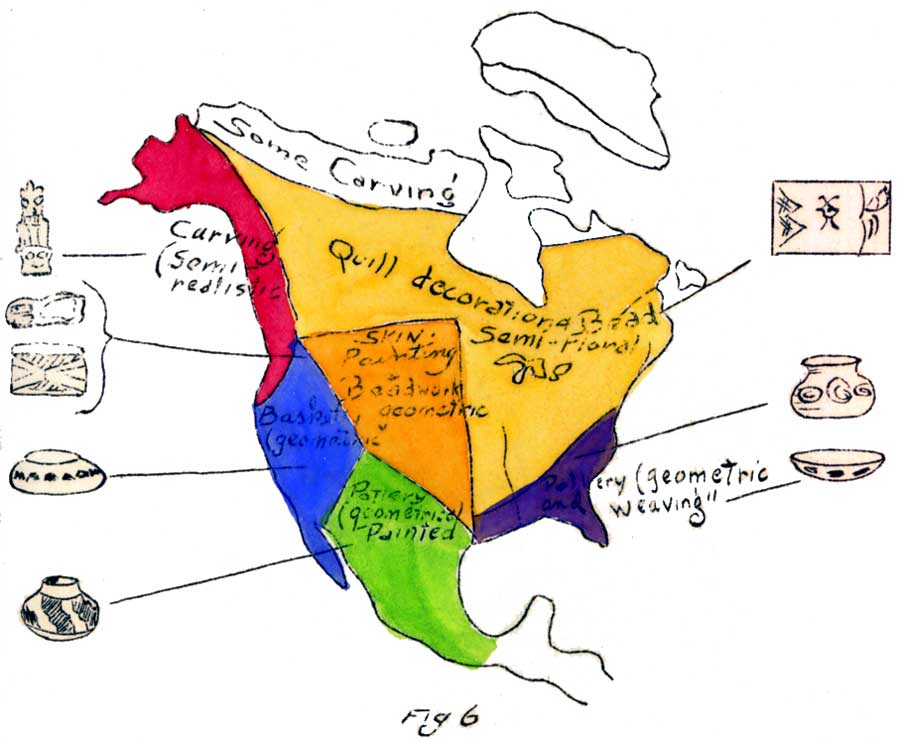 Some Carving
Carving
(Semi-
realistic
Quill decoration & Bead
Semi-Floral
SKIN:
Painting
Beadwork
geometric
Basketry
(geometric
Pottery
(geometrical)
Painted
Pottery (geometric
and weaving"
Fig 6